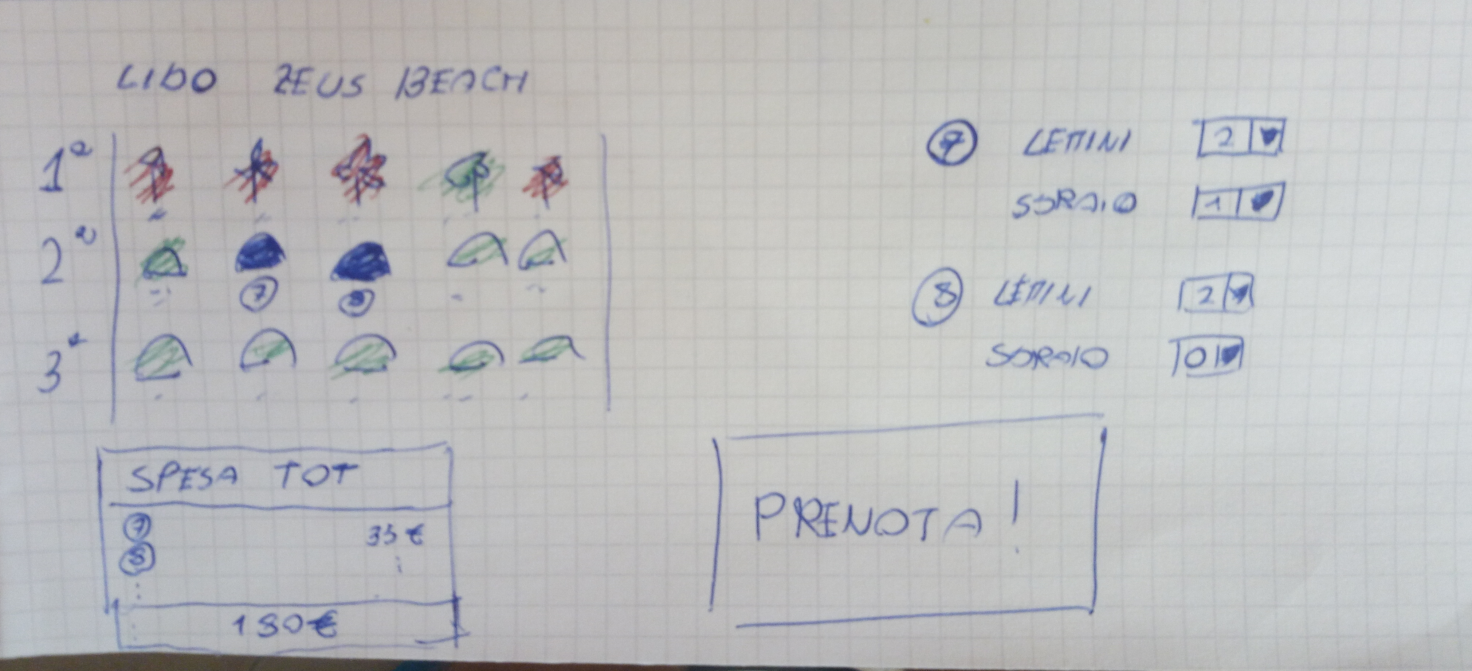 LIDO ZEUS BEACH
1ª
2ª
7 8
3ª
7 LETTINI 2
SDRAIO 1
8 LETTINI 2
SDRAIO 0
SPESA TOT
7 35 €
8
180€
PRENOTA!